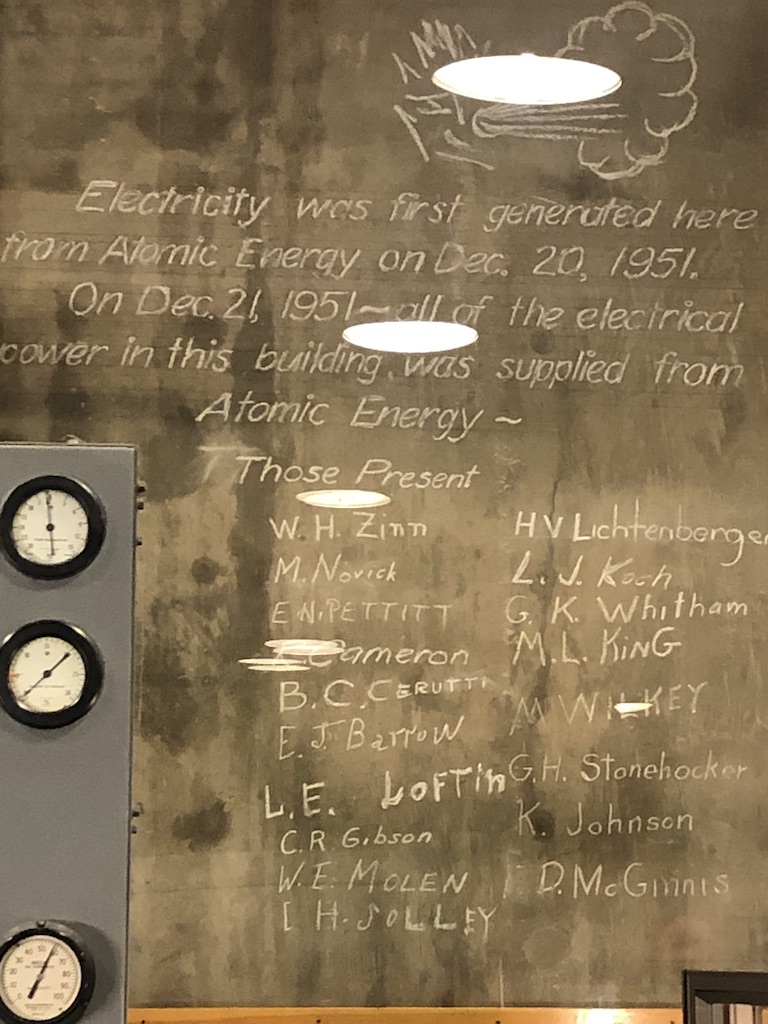 Electricity was first generated here
from Atomic Energy on Dec. 20, 1951.
On Dec. 21, 1951~all of the electrical
power in this building was supplied from
Atomic Energy ~
Those Present
W. H. Zinn
M. Novick
E. N. PETTITT
Cameron
B. C. CERUTTI
E. J. Barrow
L. E. LOFTin
C. R Gibson
W. E. MOLEN
I H. JOLLEY
H V Lichtenberger
L. J. Koch
G. K. Whitham
M. L. KinG
M WILKEY
G. H. Stonehocker
K. Johnson
D. McGinnis